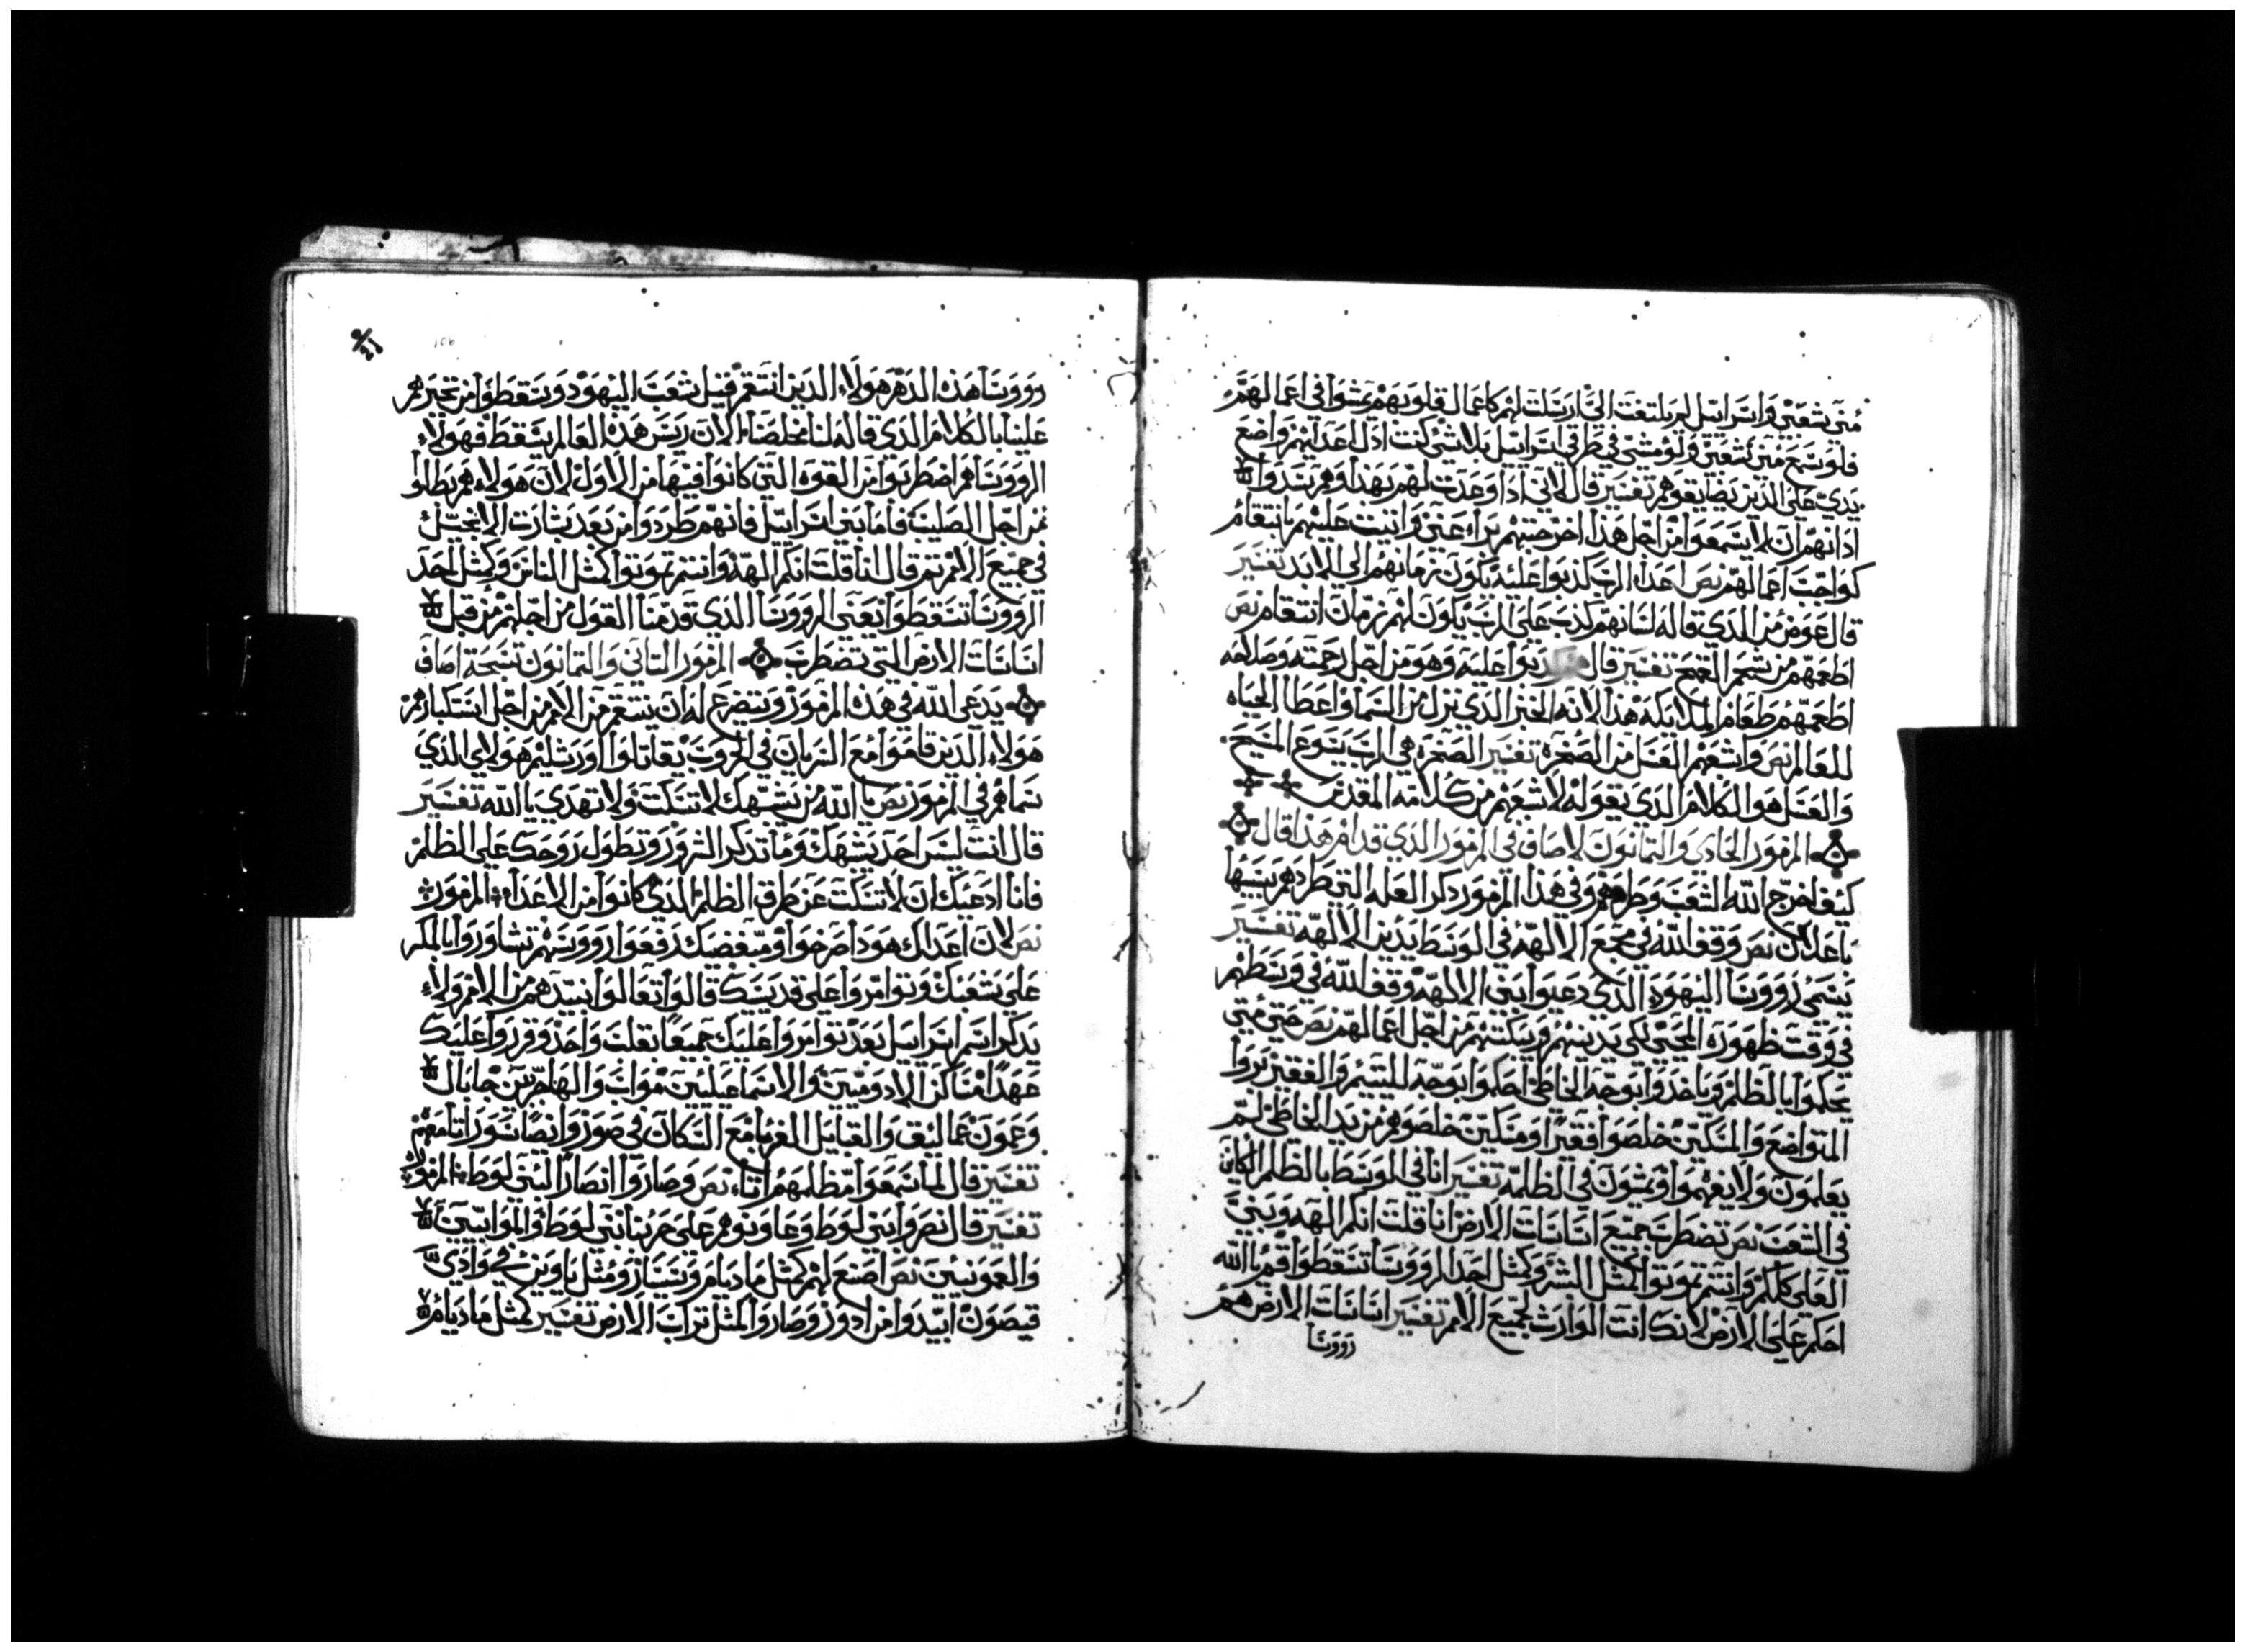 مني شعبي واسرايل لم يلتفت الي ارسلت لهم كاعمال قلوبهم يمشوا في اعمالهم
فلو سمع مني شعبي ولو مشي في طرقي اسرايل بلاشي كنت اذل اعدايهم واضع
يدي علي الذين يضايقوهم تفسير قال لاني اذا وعدت لهم بهذا وهم سدوا
اذانهم ان لا يسمعوا من اجل هذا اخرجتهم برا عني واتيت عليهم بانتقام
كواجب اعمالهم نص اعداء الرب كذبوا عليه يكون زمانهم الي الابد تفسير
قال عوض من الذي قاله لسانهم كذب علي الرب يكون لهم زمان انتقام نص
اطعمهم من شحم القمح تفسير قال كدبوا عليه وهو من اجل رحمته وصلاحه
اطعمهم طعام الملايكه هذا لانه الخبز الذي نزل من السما واعطا الحياه
للعالم نص واشبعهم العسل من الصخره تفسير الصخره هي الرب يسوع المسيح
والعسل هو الكلام الذي يقوله لاشبعهم من كلامه المقدس
المزمور الحادي والثمانون لاصاف في المزمور الذي قدام هذا قال
كيف اخرج الله الشعب وطردهم وفي هذا المزمور ذكر العله التي طردهم بسبها
باعلان نص وقف الله في مجمع الالهه في الوسط يدين الالهه تفسير
يسمي رووسا اليهود الذي دعيوا بني الالهه وقف الله في وسطهم
في وقت ظهوره المحيي لكي يدينهم ويبكتهم من اجل اعمالهم نص حتي متي
تحكموا بالظلم وياخدوا بوجه الخاطي احكموا بوجه لليتيم والفقير برروا
المتواضع والمسكين خلصوا فقيرا ومسكين خلصوهم من يد الخاطي لم
يعلمون ولا يفهموا ويمشون في الظلمه تفسير انا في الوسط بالظلم الكاين
في الشعب نص تضطرب جميع اساسات الارض انا قلت انكم الهه وبني
العلي كلكم وانتم تموتوا كمثل البشر وكمثل احد الرووسا تسقطوا قم يا الله
احكم علي الارض لانك انت الوارث لجميع الامم تفسير اساسات الارض هم
رووسا
رووسا هذه الدهر هولاء الذين انتقم قبل شعب اليهود وسقطوا من تجبرهم
علينا بالكلام الذي قاله لنا مخلصنا الان ريس هذه العالم يسقط فهولاء
الرووسا هم اضطربوا من القوه التي كانوا فيها من الاول لان هولاء هم بطلوا
من اجل الصليب فاما بني اسرايل فانهم طردوا من بعد بشارت الانجيل
في جميع الامم ثم قال انا قلت انكم الهه وانتم تموتوا كمثل الناس وكمثل احد
الرووسا تسقطوا يعني الرووسا الذي قدمنا القول من اجلهم من قبل
اساسات الارض التي تضطرب المزمور التاني والثمانون تسبحة اصاف
يدعي الله في هذه المزمور ويتضرع له ان ينتقم من الامم من اجل استكبارهم
هولاء الذين قاموا مع السريان في الحروب يقاتلوا اورشليم هولاي الذي
سماهم في المزمور نص يا الله من يشبهك لا تسكت ولا تهدي يا الله تفسير
قال انت ليس احد يشبهك وما تذكر الشرور وتطول روحك علي الظلم
فانا ادعيك ان لا تسكت عن طرق الظلم الذي كانوا من الاعداء المزمور
نص لان اعداك هودا صرخوا ومبغضيك رفعوا رووسهم تشاوروا بالمكر
علي شعبك وتوامروا علي قديسك قالوا تعالوا نبيدهم من الامم ولا
يذكر اسم اسرايل بعد توامروا عليك جميعا بقلب واحد وقرروا عليك
عهدا مساكن الادوميين والاسماعيليين مواب والهاجريين جابال
وعمون عماليق والقبايل الغربا مع السكان في صور وايضا سور اتا معهم
تفسير قال لما سمعوا مظلمهم اتا نص وصاروا انصارا لبني لوط المزمور
تفسير قال نصروا بني لوط وعاونوهم علي حربنا بني لوط والموابيين
والعمونيين نص اصنع لهم كمثل ماديام وسيسار ومثل ياوين في وادي
قيصون ابيدوا من ادور وصاروا كمثل تراب الارض تفسير كمثل ماديام